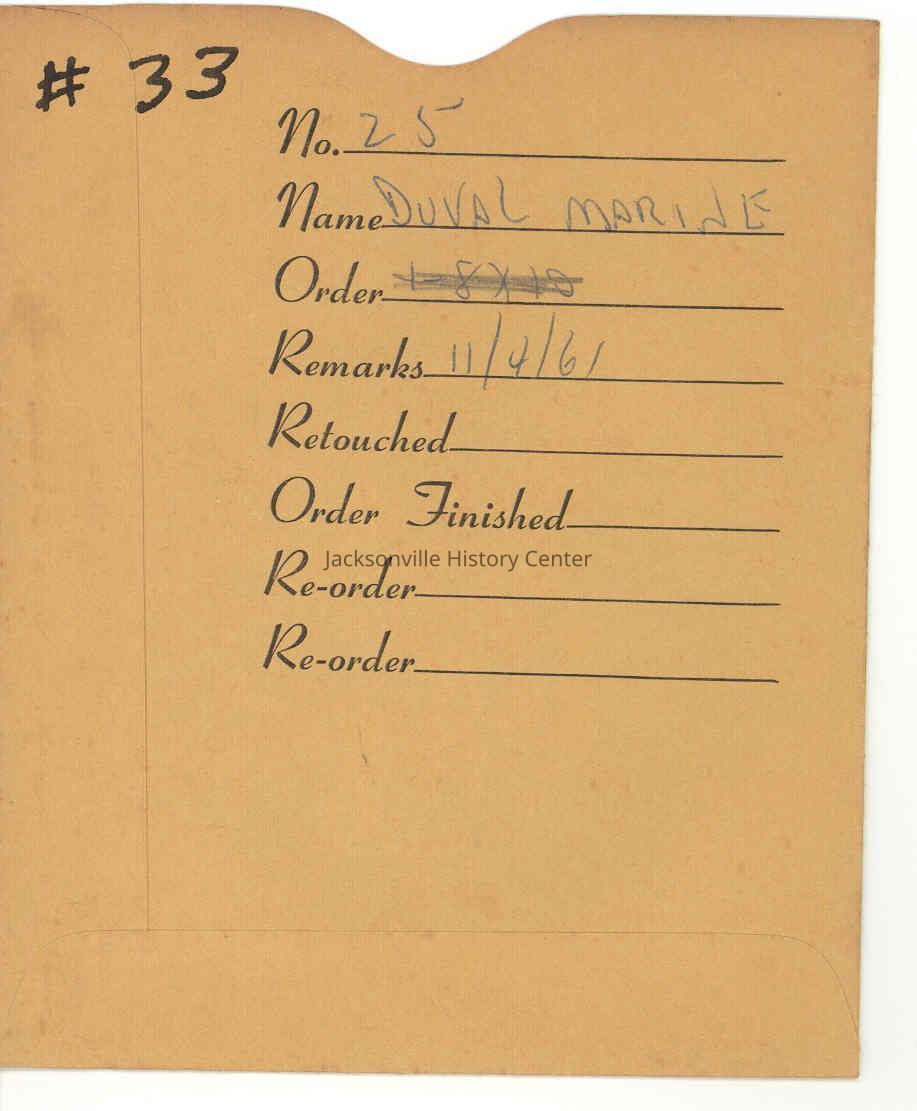 # 33
No. 25
Name DUVAL MARINE
Order 1-8X10
Remarks 11/4/61
Retouched
Order Finished
Jacksonville History Center
Re-order
Re-order